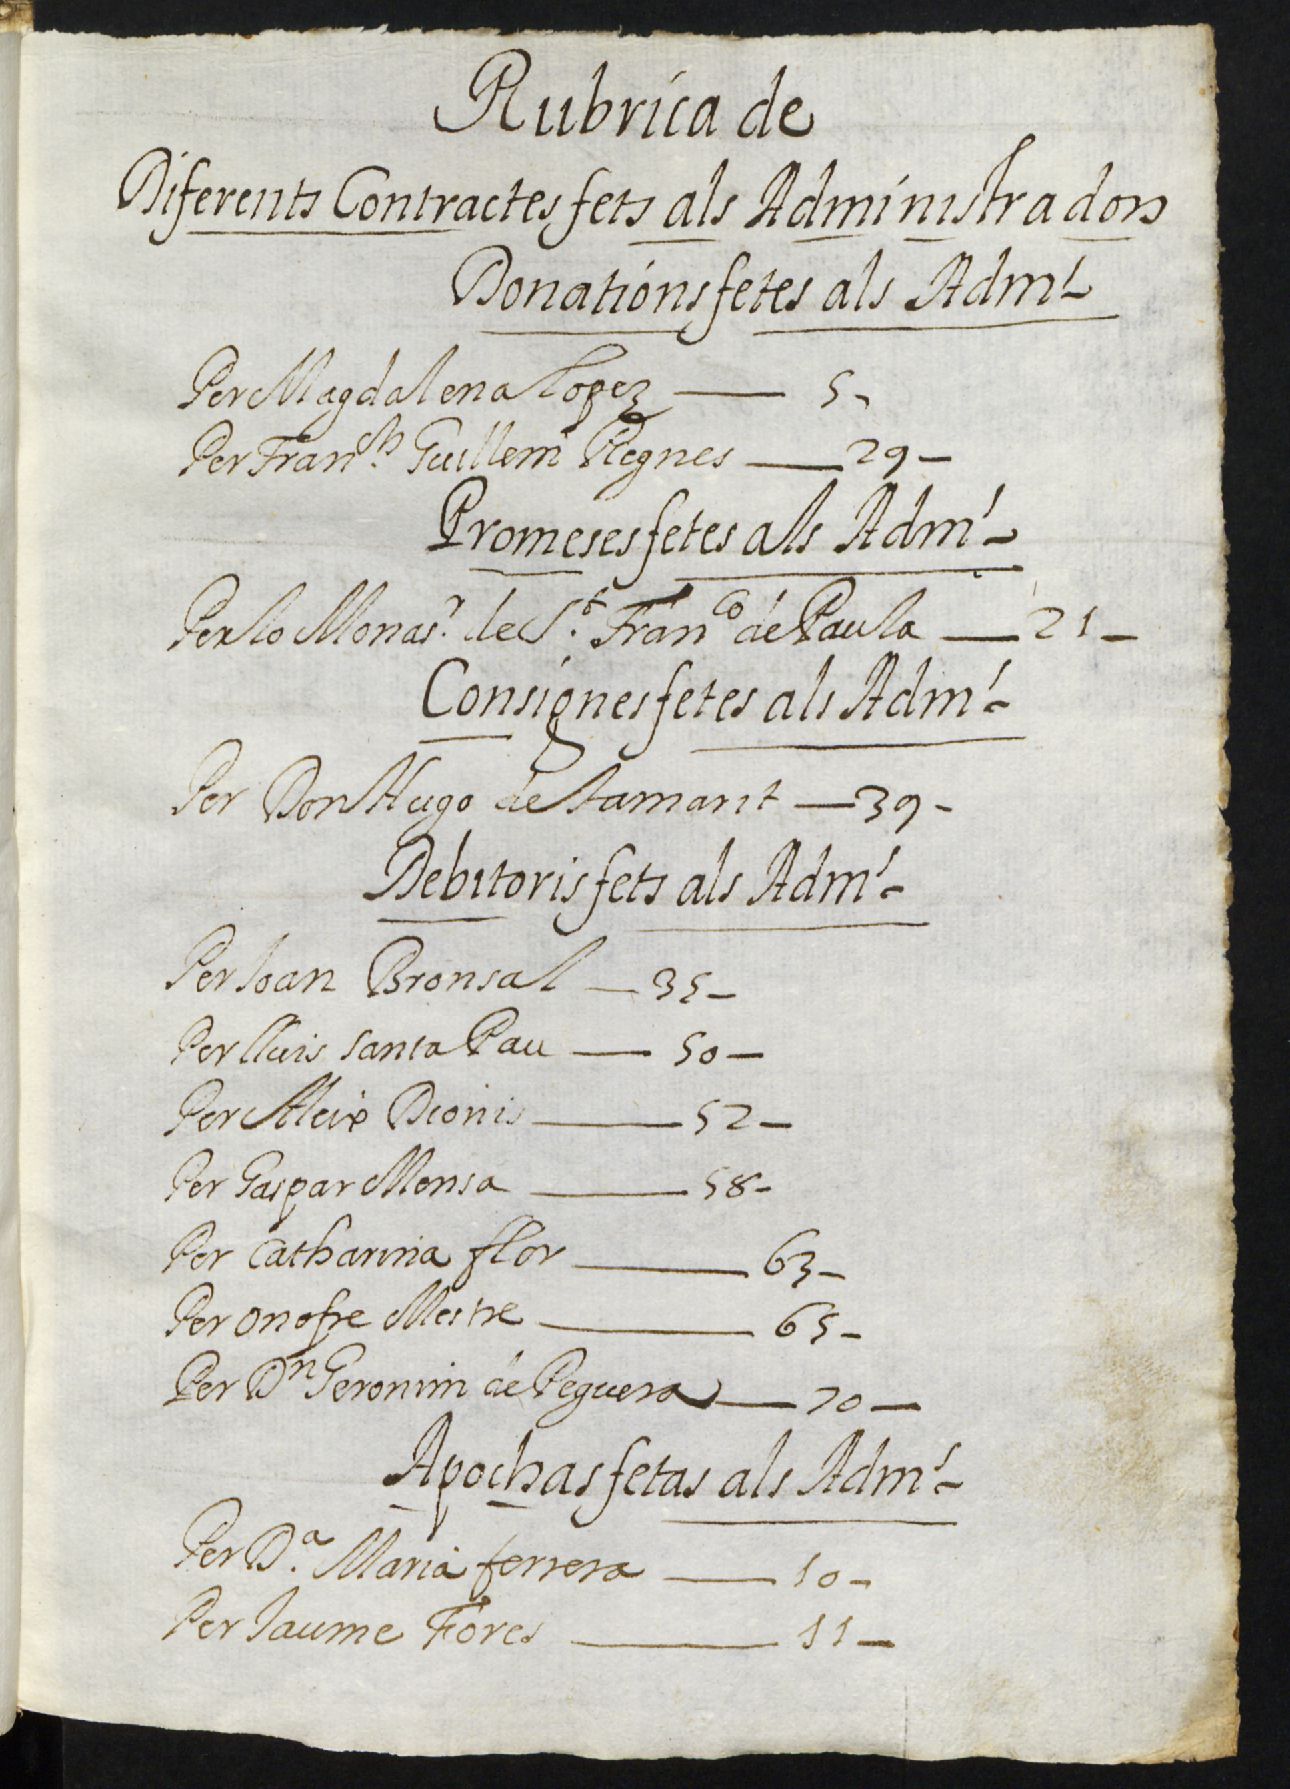 Rubrica de
Diferents Contractes fets als Administradors
Donations fetes als Adm.rs
Per Magdalena Lopez —— 5 -
Per Fran.ch Guillem Regnes —— 29 -
Promeses fetes als Adm.rs
Per lo Monas.r de S.t Fran.co de Paula —— 21 -
Consignes fetes als Adm.rs
Per Don Hugo de Tamarit —— 39 -
Debitoris fets als Adm.rs
Per Joan Bronsal — 35 -
Per lluis santa Pau —— 50 -
Per Aleix Dionis —— 52 -
Per Gaspar Monsa —— 58 -
Per Catharina flor —— 63 -
Per onofre Mestre —— 65 -
Per Dn Geronim de Peguera —— 70 -
Apochas fetas als Adm.rs
Per D.a Maria ferrera —— 10 -
Per Jaume Fores —— 11 -